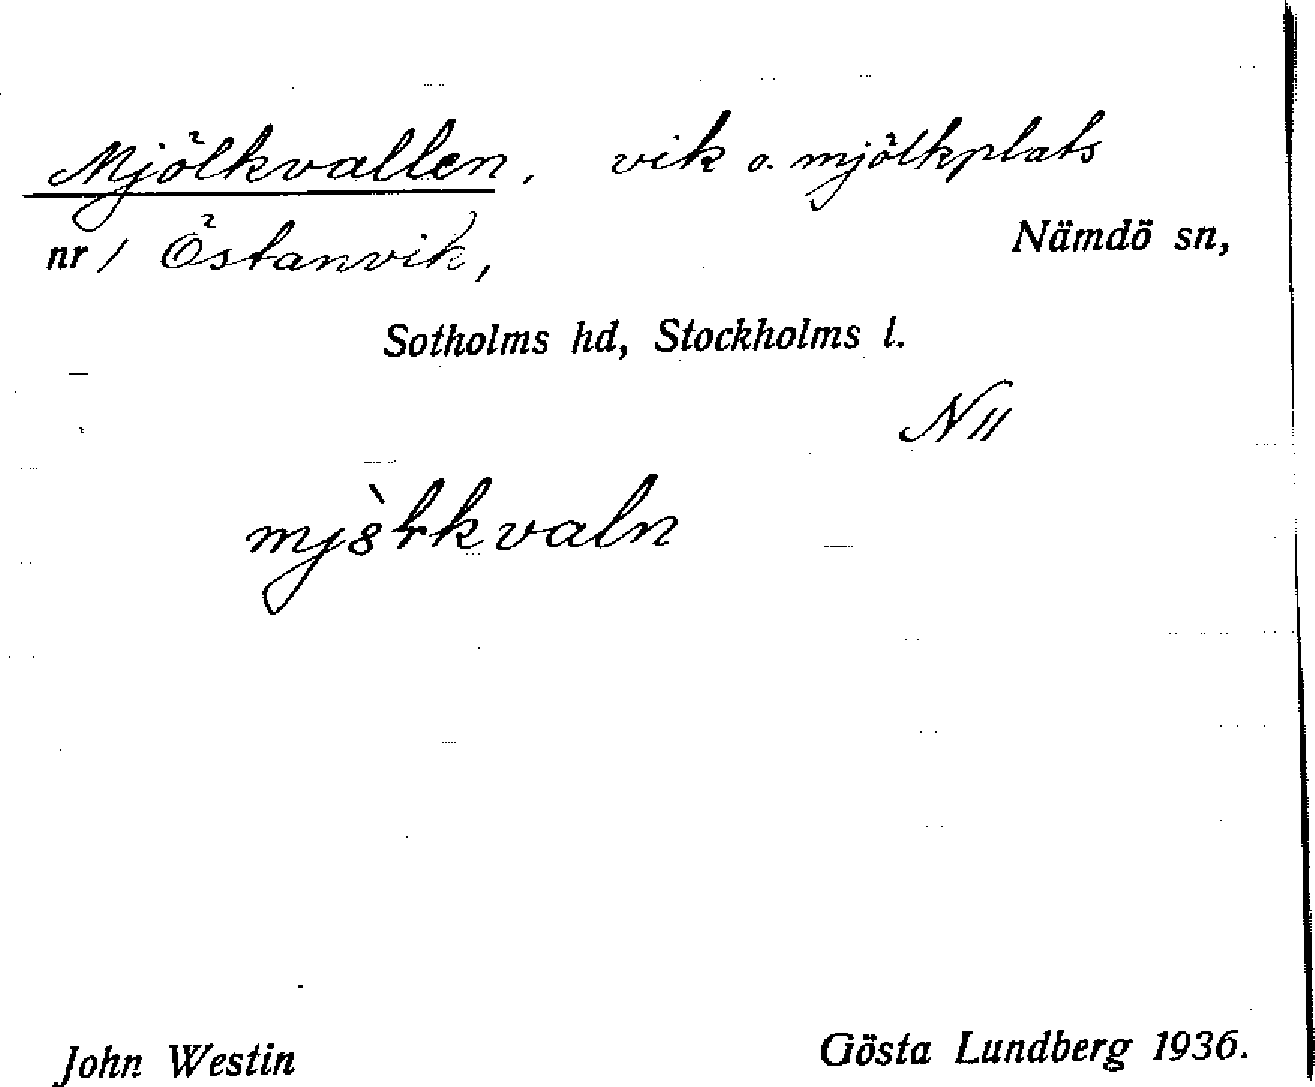 Mjölkvallen, vik o. mjölkplats
nr 1 Östanvik, Nämdö sn,
Sotholms hd, Stockholms l.
N11
John Westin Gösta Lundberg 1936.